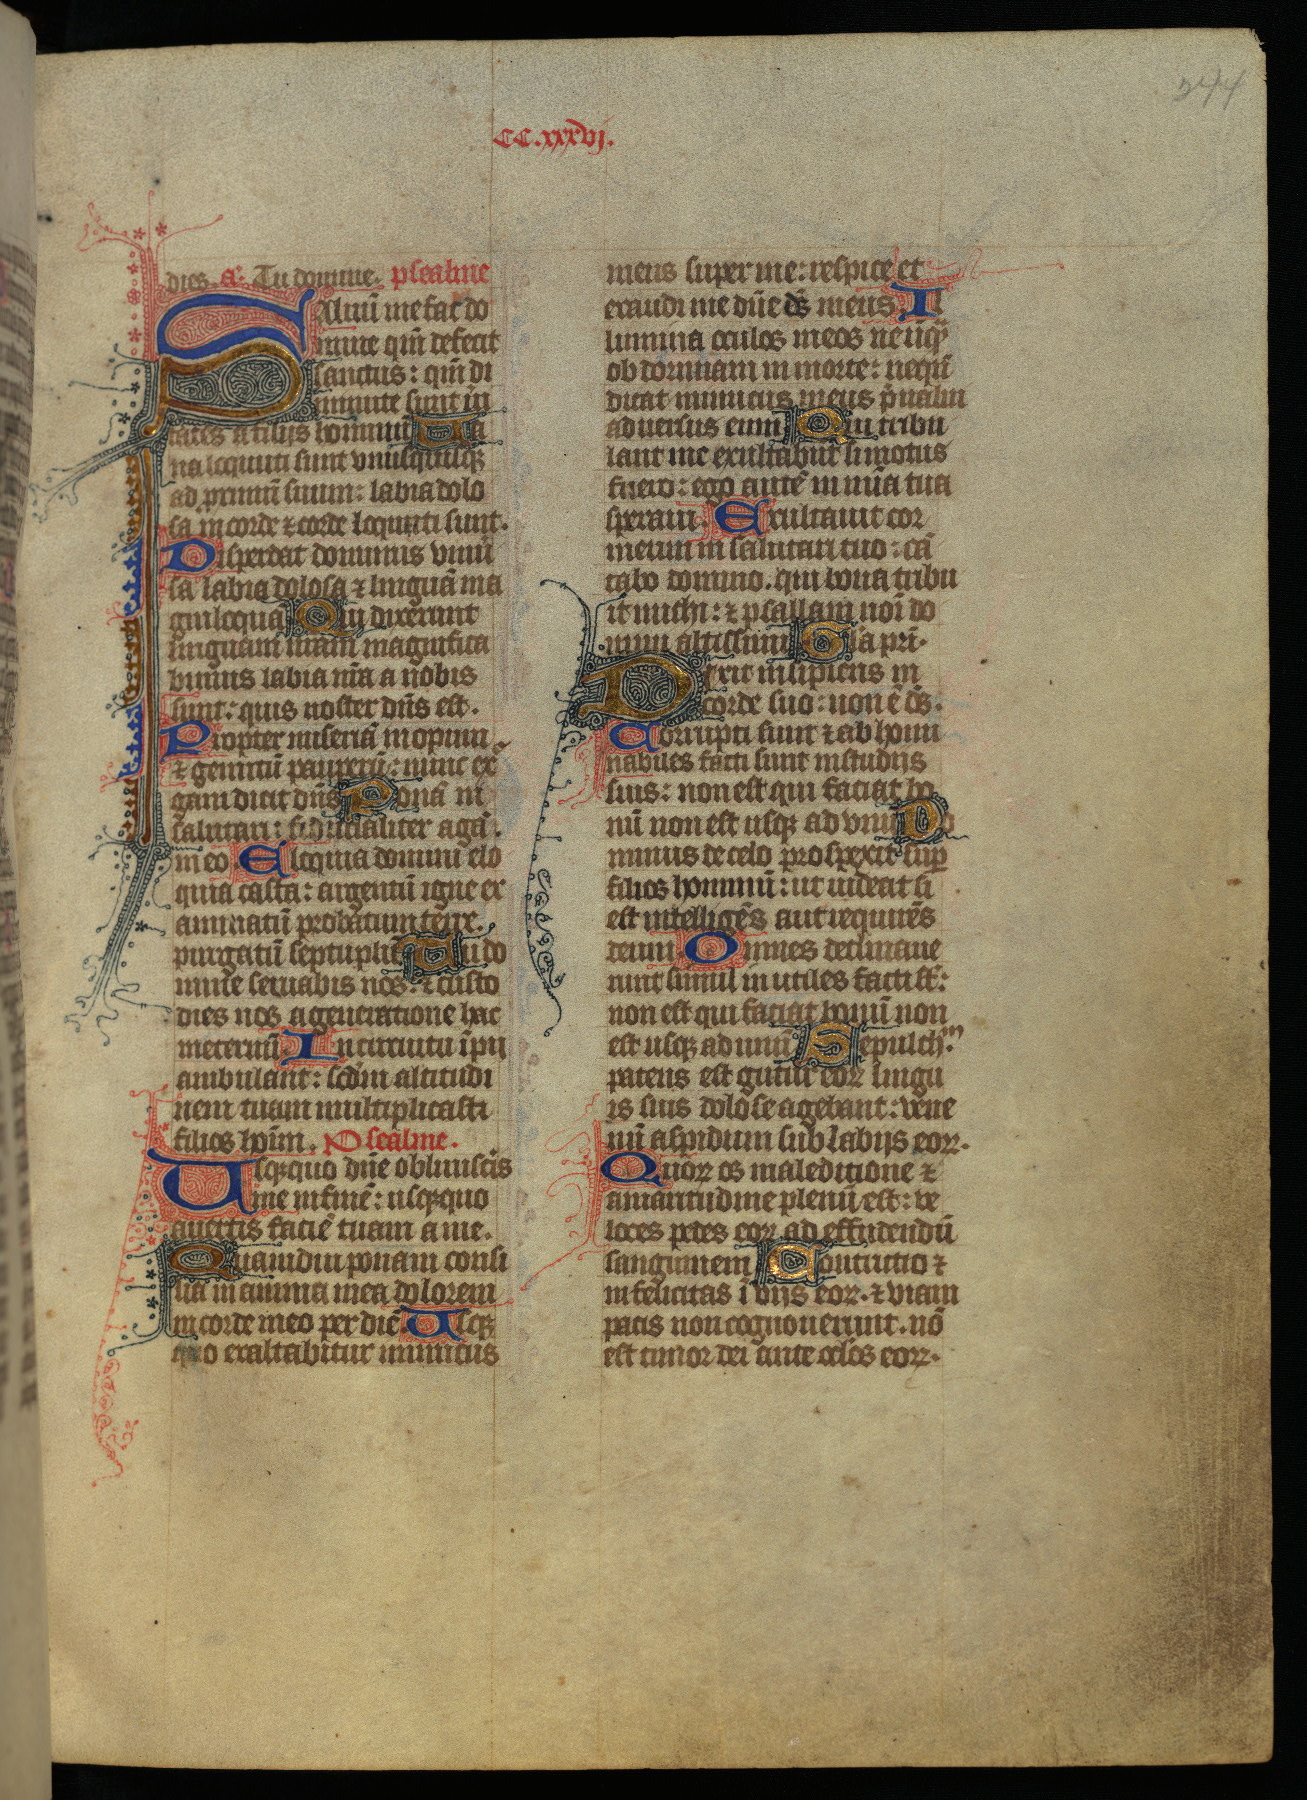 244
CC.xxxvj.
dies. a. Tu domine. psealme
Aluū me fac do
mine qm̄ defecit
sanctus: qm̄ di
minute sunt ūi
tates a filijs hominū Ua
na locquuti sunt vnusquisqꝫ
ad primū suum: labia dolo
sa in corde ⁊ corde locquuti sunt.
Disperdat dominus vniū
sa labia dolosa ⁊ linguā ma
gnilocquā Qui dixerunt
linguam nram magnifica
bimus labia nr̄a a nobis
sunt: quis noster dn̄s est.
Propter miseriā inopum
⁊ gemitū pauperū: nunc ex
gam dicit dn̄s Ponā in
salutari: fiducialiter agā.
in eo Elocquia domini elo
quia casta: argentū igne ex
aminatū probatum terre.
purgatū septuplū Tu do
mine seruabis nos: ⁊ custo
dies nos a generatione hac
in eternū In circuitu īpij
ambulant: scdm altitudi
nem tuam multiplicasti
filios hoim. Psealme.
Usqꝫquo dn̄e obliuiscis
me in finē: usqꝫquo
auertis faciē tuam a me.
Quamdiu ponam consi
lia in anima mea dolorem
in corde meo per diē Usqꝫ
quo exaltabitur inimicus
meus super me: respice et
exaudi me dn̄e ds̄ meus Il
lumina oculos meos ne ūqͣ
ob dormiam in morte: nequn̄
dicat inimicus meus p̄ualui
aduersus eum Qui tribu
lant me exultabūt si motus
fuero: ego autē in mīa tua
speraui. Exultauit cor
meum in salutari tuo: cā
tabo domino. qui bona tribu
it michi: ⁊ psallam noī do
mini altissimi Gla pri.
Dixit insipiens in
corde suo: non ē ds̄.
Corrupti sunt ⁊ ab homi
nabiles facti sunt in studijs
suis: non est qui faciat bo
nū non est usqꝫ ad vnū Do
minus de celo prospexit sup
filios hominū: ut uideat si
est intelligēs aut requirēs
deum Omnes declinaue
runt simul inutiles facti st̄:
non est qui faciat bonū non
est usqꝫ ad unū Sepulchꝝ
patens est guttur eoꝝ lingu
is suis dolose agebant: vene
nū aspidum sub labijs eoꝝ.
Quoꝝ os maleditione ⁊
amaritudine plenū est: ve
loces pedes eoꝝ ad effundendū
sanguinem Contritio ⁊
infelicitas ī vijs eoꝝ. ⁊ viam
pacis non cognouerunt. nō
est timor dei ante oclōs eoꝝ.